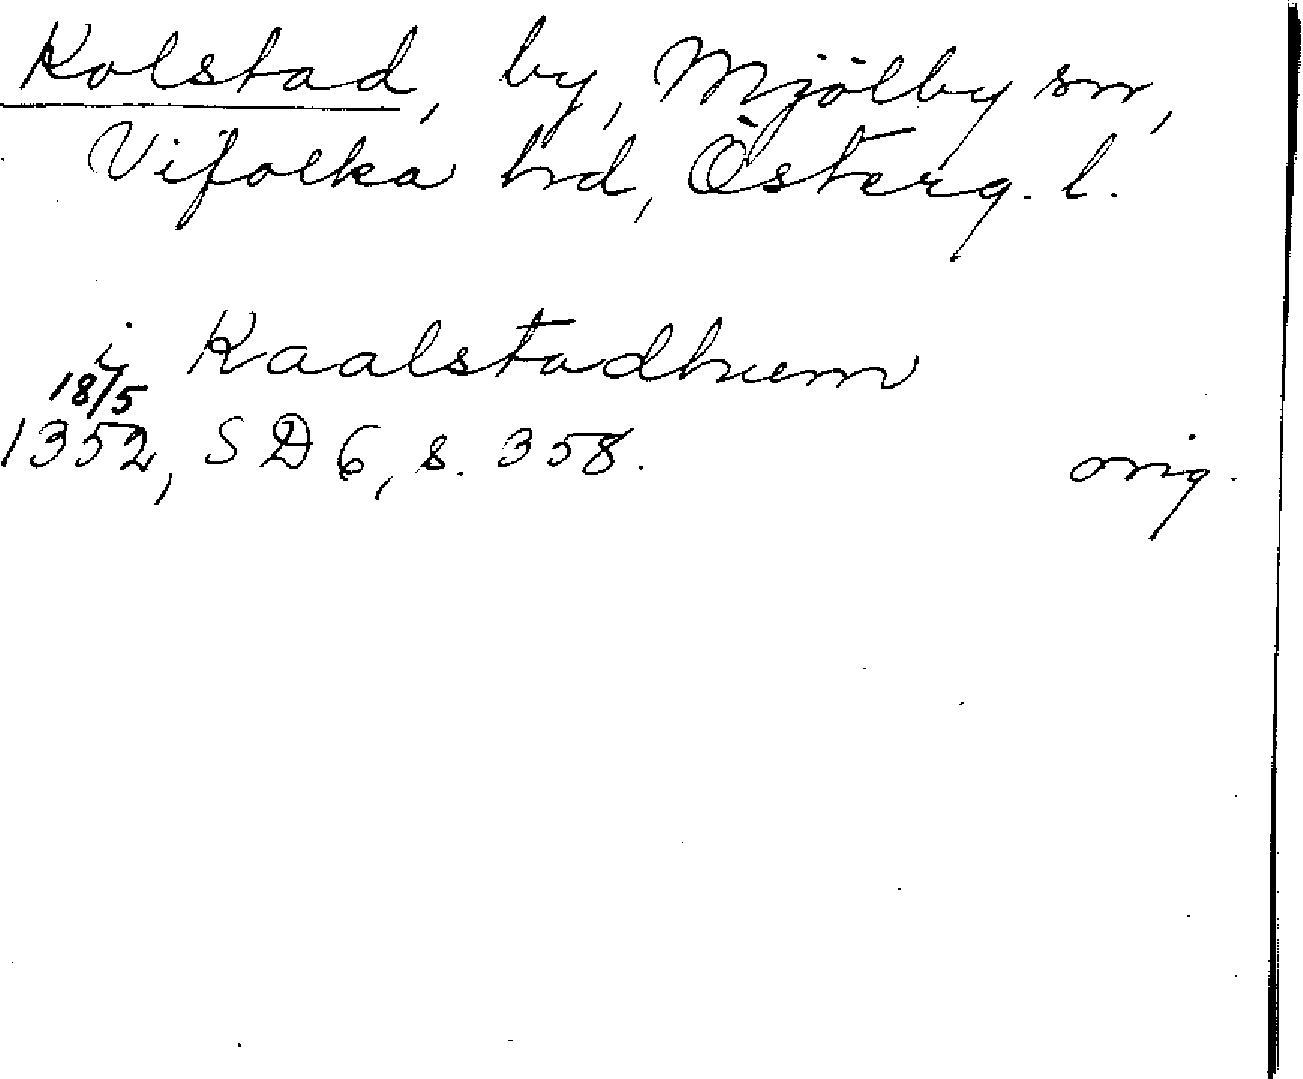 Kolstad, by, Mjölby sn,
Vifolka hd, Österg. l.
i Kaalstadhum
18/5
1352, SD 6, s. 358. orig.